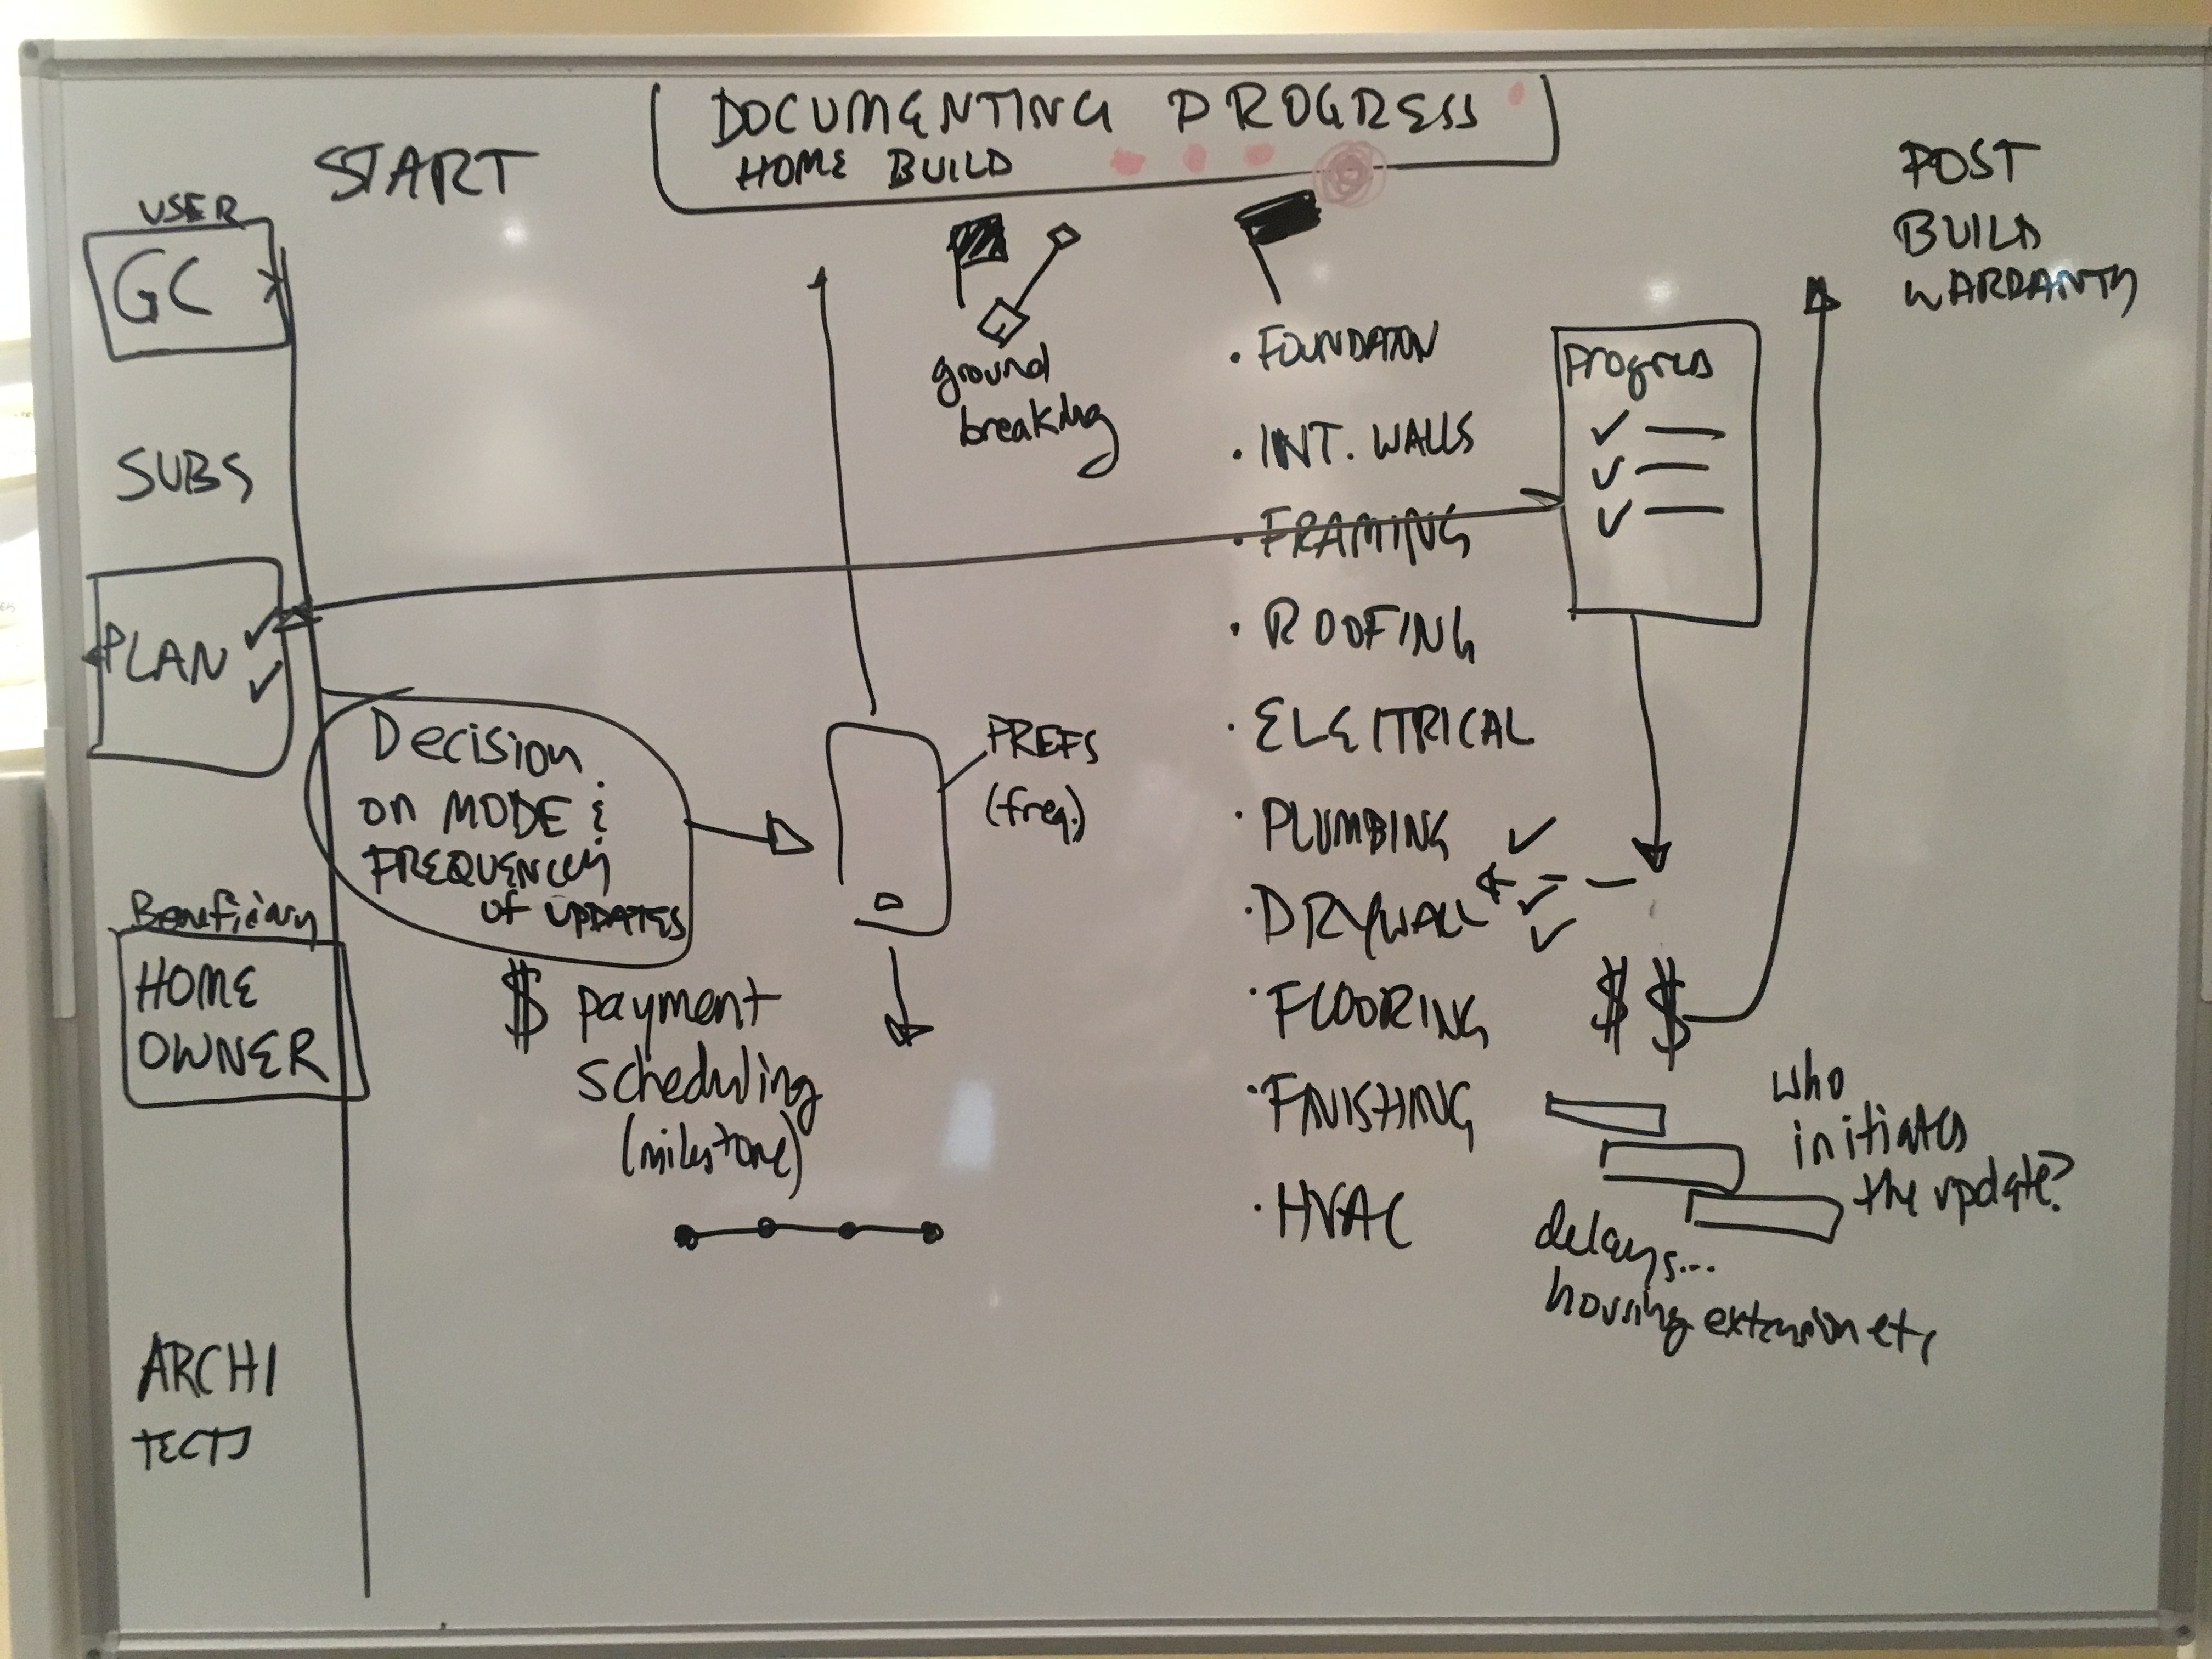 DOCUMENTING PROGRESS
HOME BUILD
START
POST
BUILD
WARRANTY
USER
GC
SUBS
PLAN
Beneficiary
HOME
OWNER
ARCHI
TECTS
Decision
on MODE &
FREQUENCY
of UPDATES
$ payment
scheduling
(milestone)
PREFS
(freq.)
ground
breaking
• FOUNDATON
• INT. WALLS
• FRAMING
• ROOFING
• ELECTRICAL
• PLUMBING
• DRYWALL
• FLOORING
• FINISHING
• HVAC
Progress
$ $
who
initiates
the update?
delays...
housing extension etc